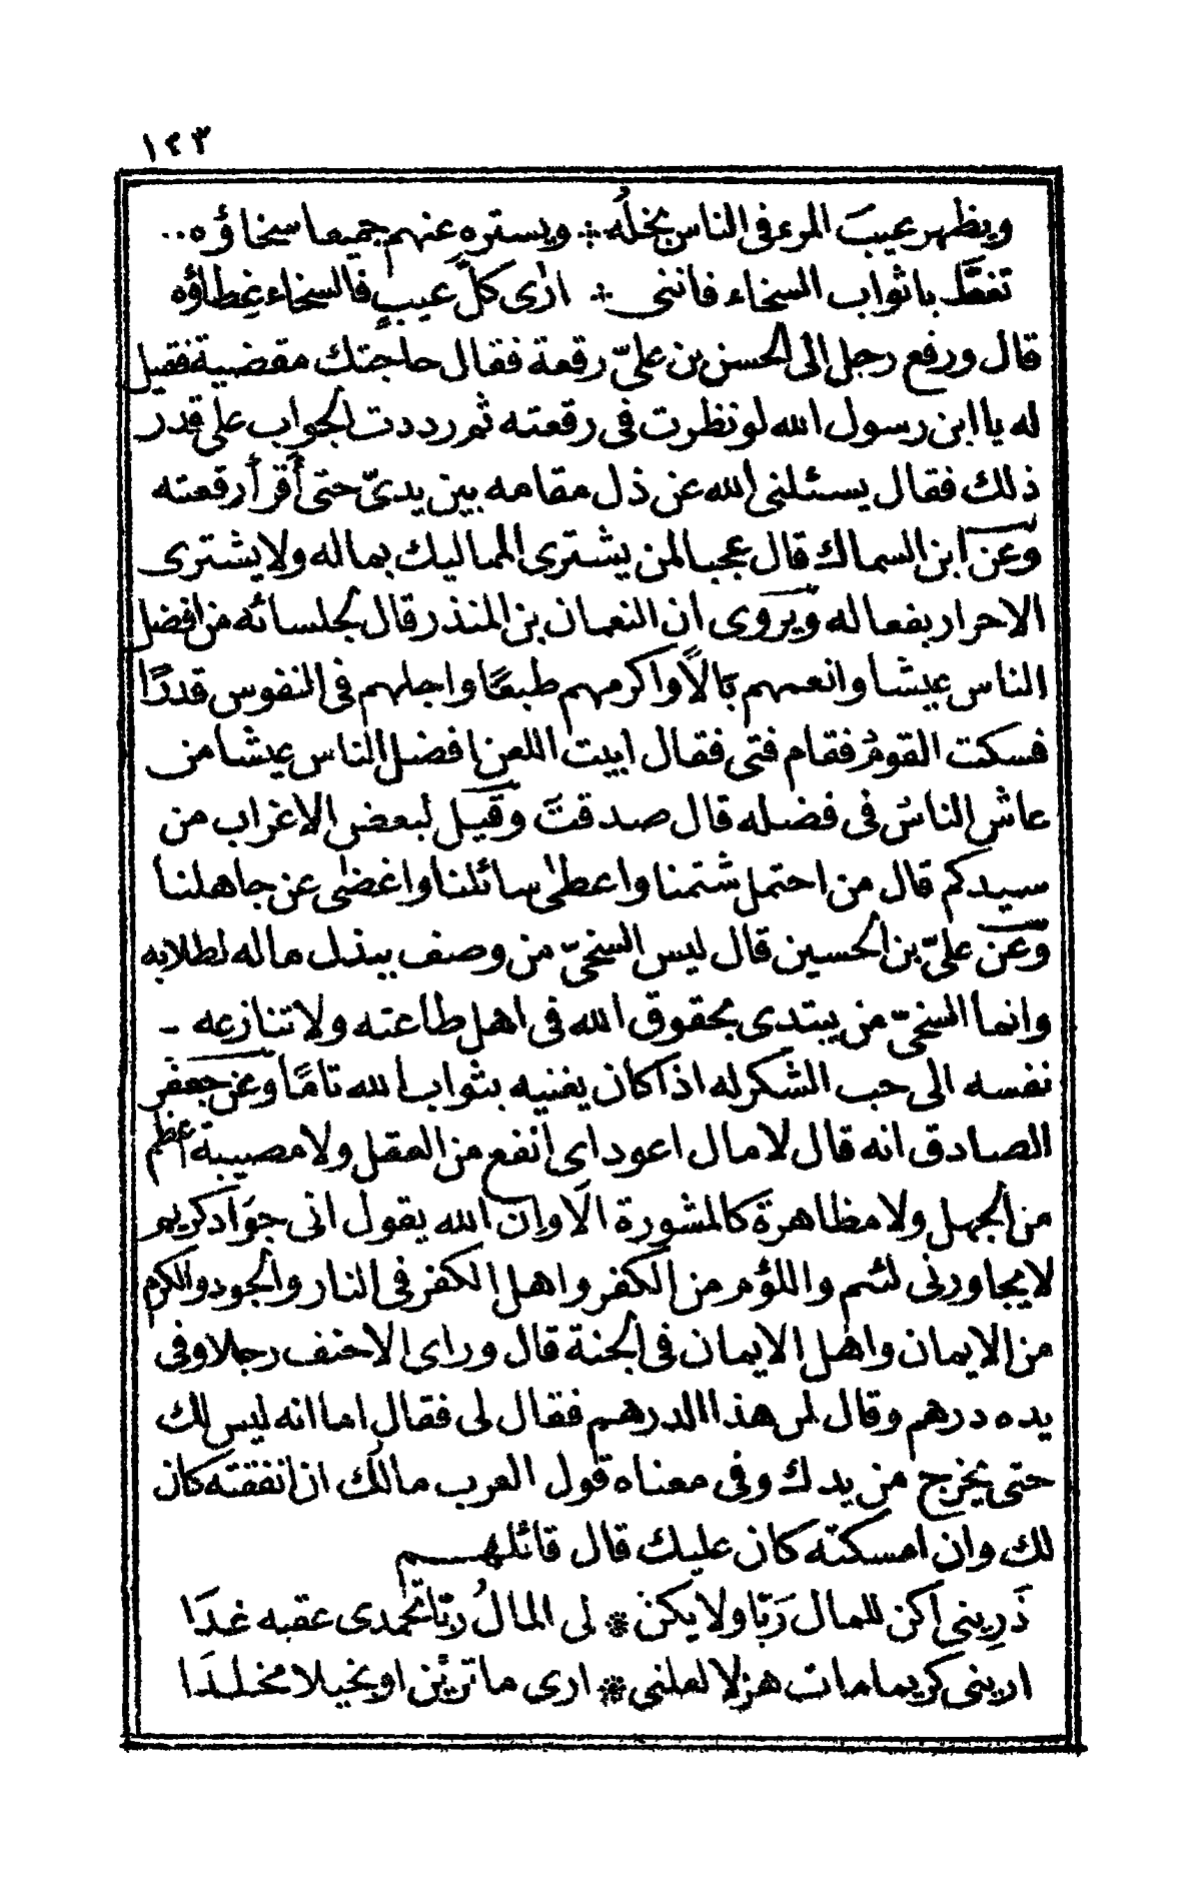 ١٤٣
ويظهر عيبَ المرء فى الناس بخلُه ⁘ ويستره عنهم جميعا سخاؤه ..
تغطَّ باثواب السخاء فاننى ⁘ ارٰى كلَّ عيبٍ فالسخاء غِطاؤه
قال ورفع رجل الى الحسن بن علىّ رقعة فقال حاجتك مقضية فقيل
له يا ابن رسول الله لو نظرت فى رقعته ثم رددت الجواب على قدر
ذلك فقال يسئلنى الله عن ذل مقامه بين يدىّ حتى أقرأ رقعته
وعن ابن السماك قال عجبا لمن يشترى المماليك بماله ولا يشترى
الاحرار بفعاله ويروى ان النعمان بن المنذر قال لجلسائه من افضل
الناس عيشا وانعمهم بَالاً واكرمهم طبعًا واجلهم فى النفوس قدرًا
فسكت القومُ فقام فتى فقال ابيت اللعن افضل الناس عيشا من
عاش الناسُ فى فضله قال صدقتَ وقيل لبعض الاعراب من
سيدكم قال من احتمل شتمنا واعطىٰ سائلنا واغضىٰ عن جاهلنا
وعن علىّ بن الحسين قال ليس السخىّ من وصف ببذل ماله لطلابه
وانما السخىّ من يبتدى بحقوق الله فى اهل طاعته ولا تنازعه -
نفسه الى حب الشكر له اذا كان يغنيه بثواب الله تامًا وعن جعفر
الصادق انه قال لا مال اعود اى انفع من العقل ولا مصيبة اعظم
من الجهل ولا مظاهرة كالمشورة الَا وان الله يقول انى جوَاد كريم
لا يجاورنى لئيم واللؤم من الكفر واهل الكفر فى النار والجود والكرم
من الايمان واهل الايمان فى الجنة قال وراى الاحنف رجلا وفى
يده درهم وقال لمن هذا الدرهم فقال لى فقال اما انه ليس لك
حتى يخرج من يدك وفى معناه قول العرب مالُك ان انفقته كان
لك وان امسكته كان عليك قال قائلهم
ذَرِينى اكن للمال رَبّا ولا يكن ⁜ لى المالُ ربّا تحمدى عقبه غدَا
ارينى كريما مات هزلا لعلنى ⁜ ارى ما ترَين او بخيلا مخلدَا